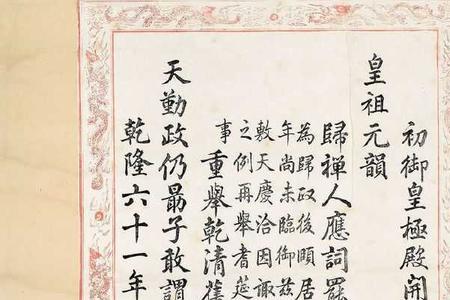 初御皇極殿開
皇祖元韻
歸禪人應詞罷
為歸政後頤居
年尚未臨御茲
敷天慶洽因諏
之例再舉耆筵
事重舉乾清舊
天勤政仍勗子敢謂
乾隆六十一年